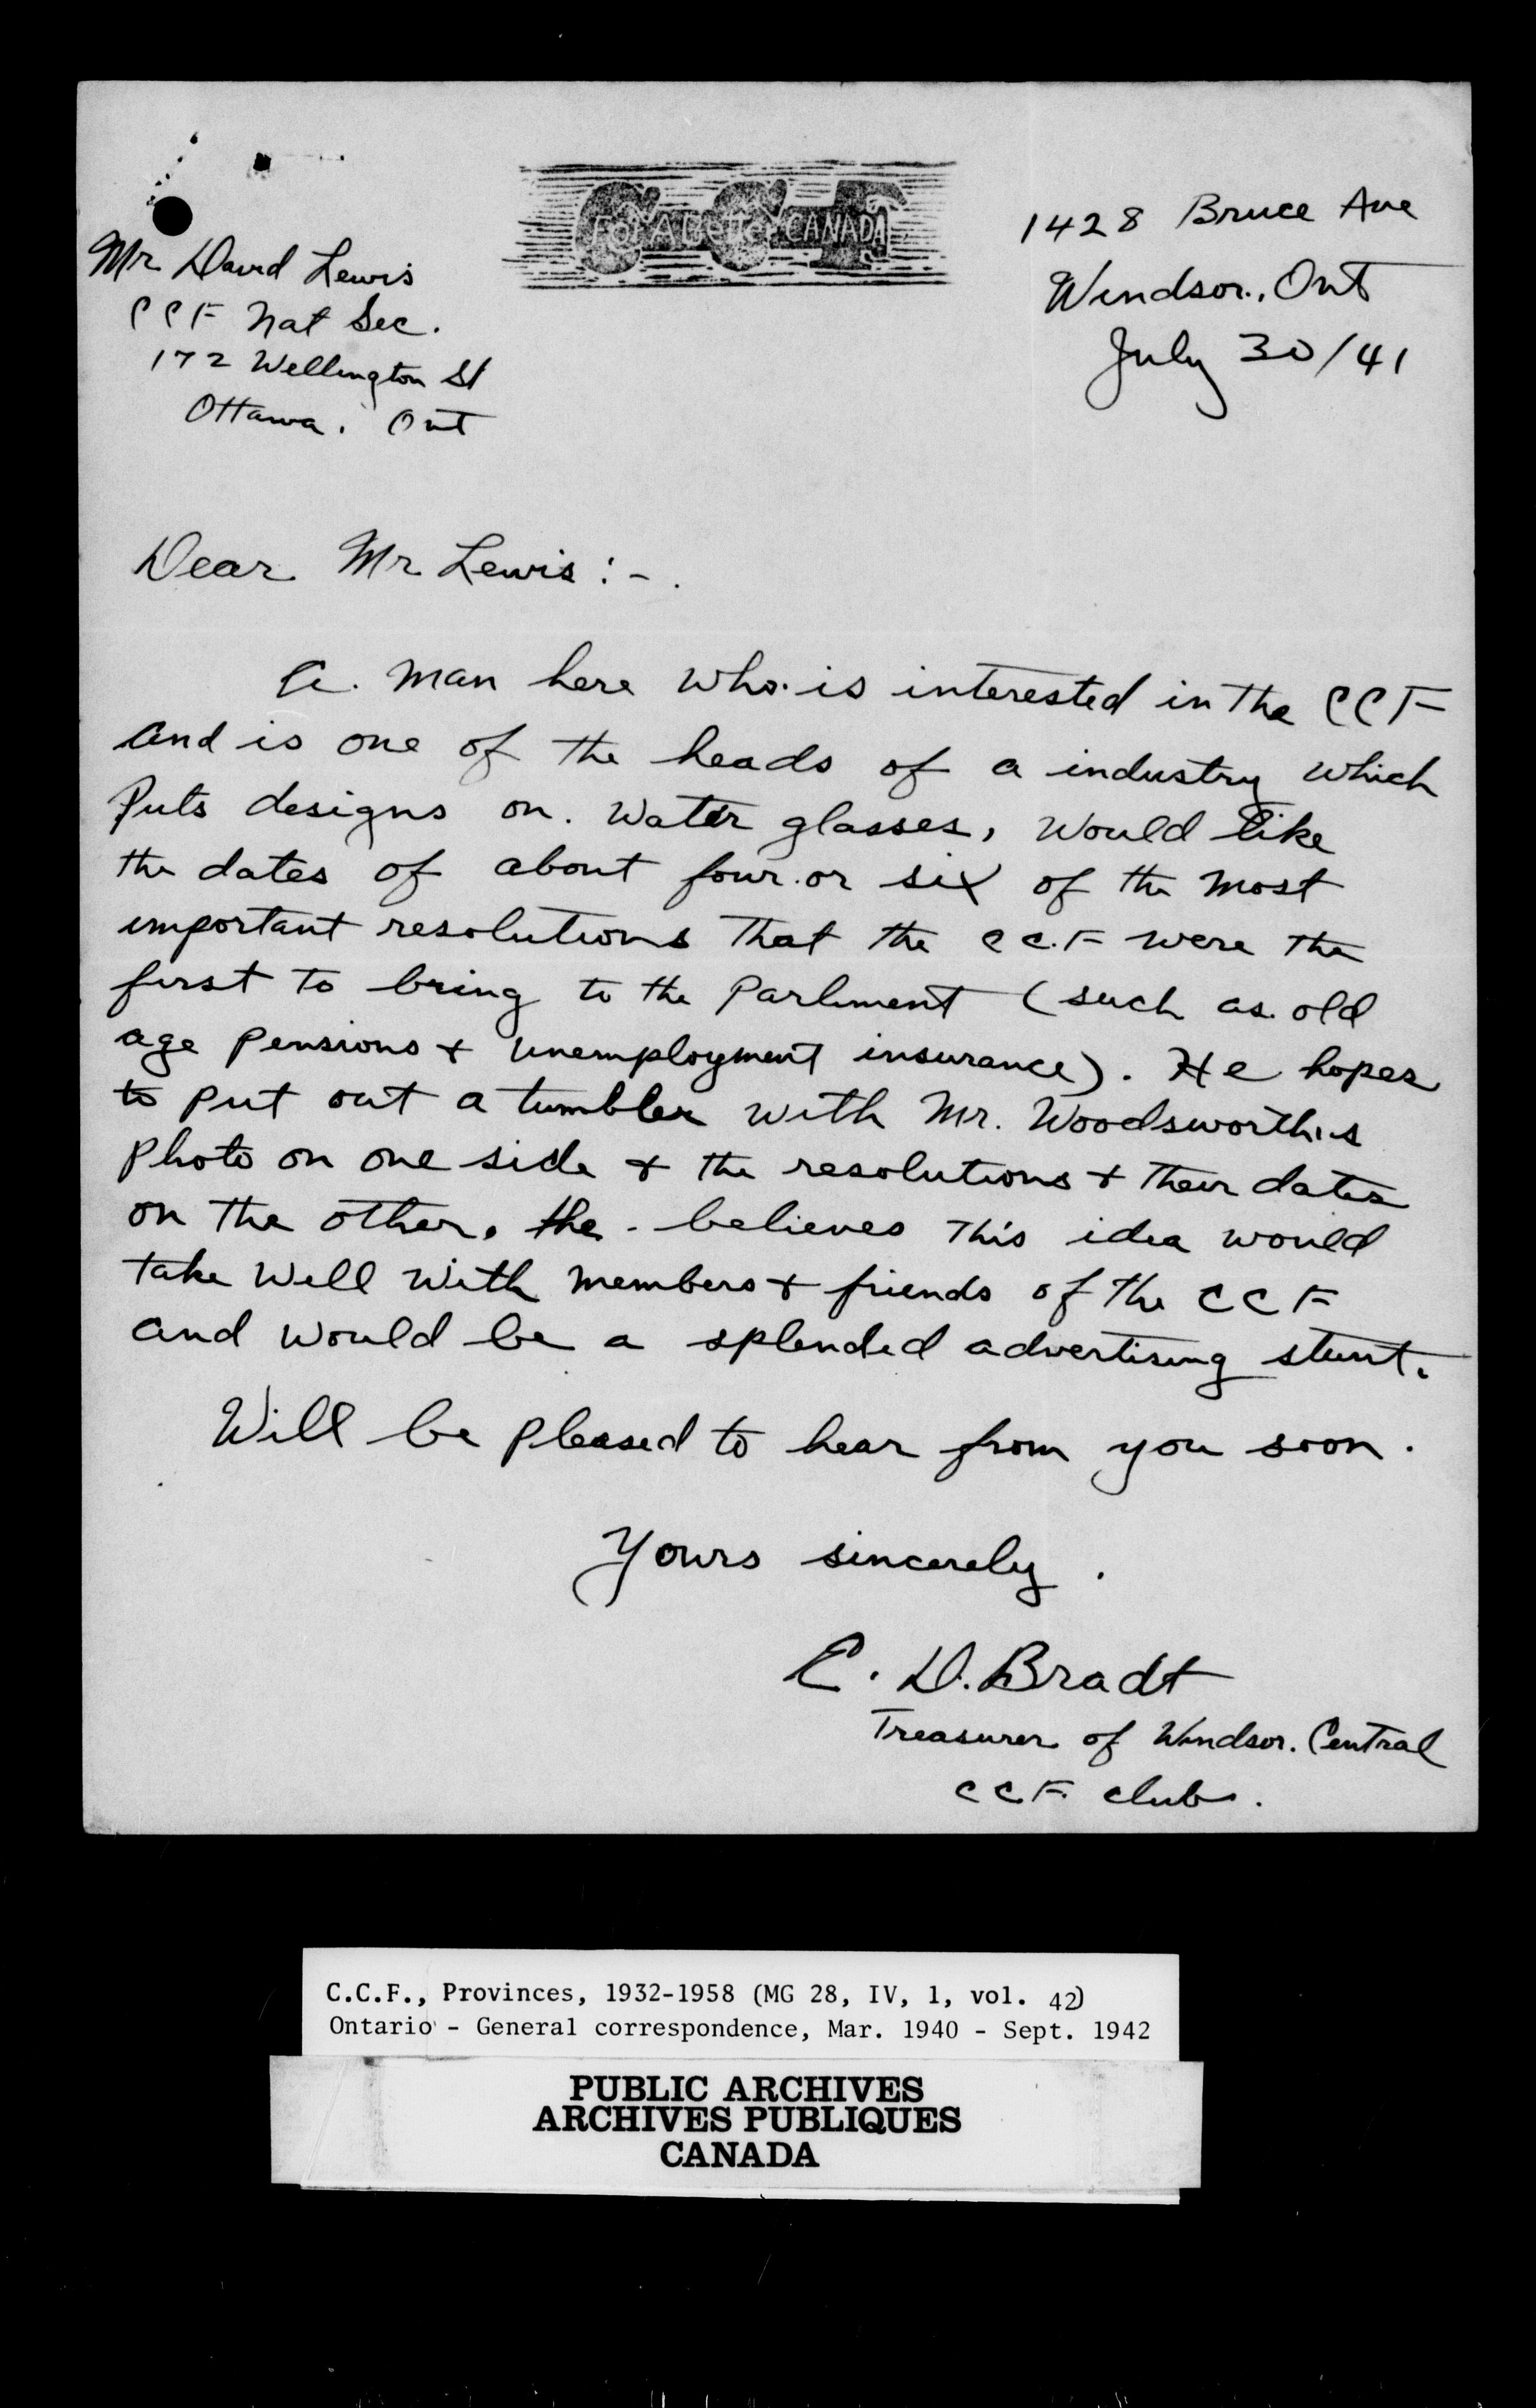 CCF
For A Better CANADA
1428 Bruce Ave
Windsor., Ont
July 30/41
Mr David Lewis
CCF Nat Sec.
172 Wellington St
Ottawa. Ont
Dear Mr Lewis:-.
A. man here who is interested in the CCF
and is one of the heads of a industry which
puts designs on. water glasses, would like
the dates of about four or six of the most
important resolutions that the CC.F were the
first to bring to the Parliment (such as old
age pensions + unemployment insurance). He hopes
to put out a tumbler with Mr. Woodsworth's
photo on one side + the resolutions + their dates
on the other. He - believes this idea would
take well with members + friends of the CCF
and would be a splended advertising stunt.
Will be pleased to hear from you soon.
Yours sincerely.
E. D. Bradt
Treasurer of Windsor. Central
CCF. club.
C.C.F., Provinces, 1932-1958 (MG 28, IV, 1, vol. 42)
Ontario - General correspondence, Mar. 1940 - Sept. 1942
PUBLIC ARCHIVES
ARCHIVES PUBLIQUES
CANADA